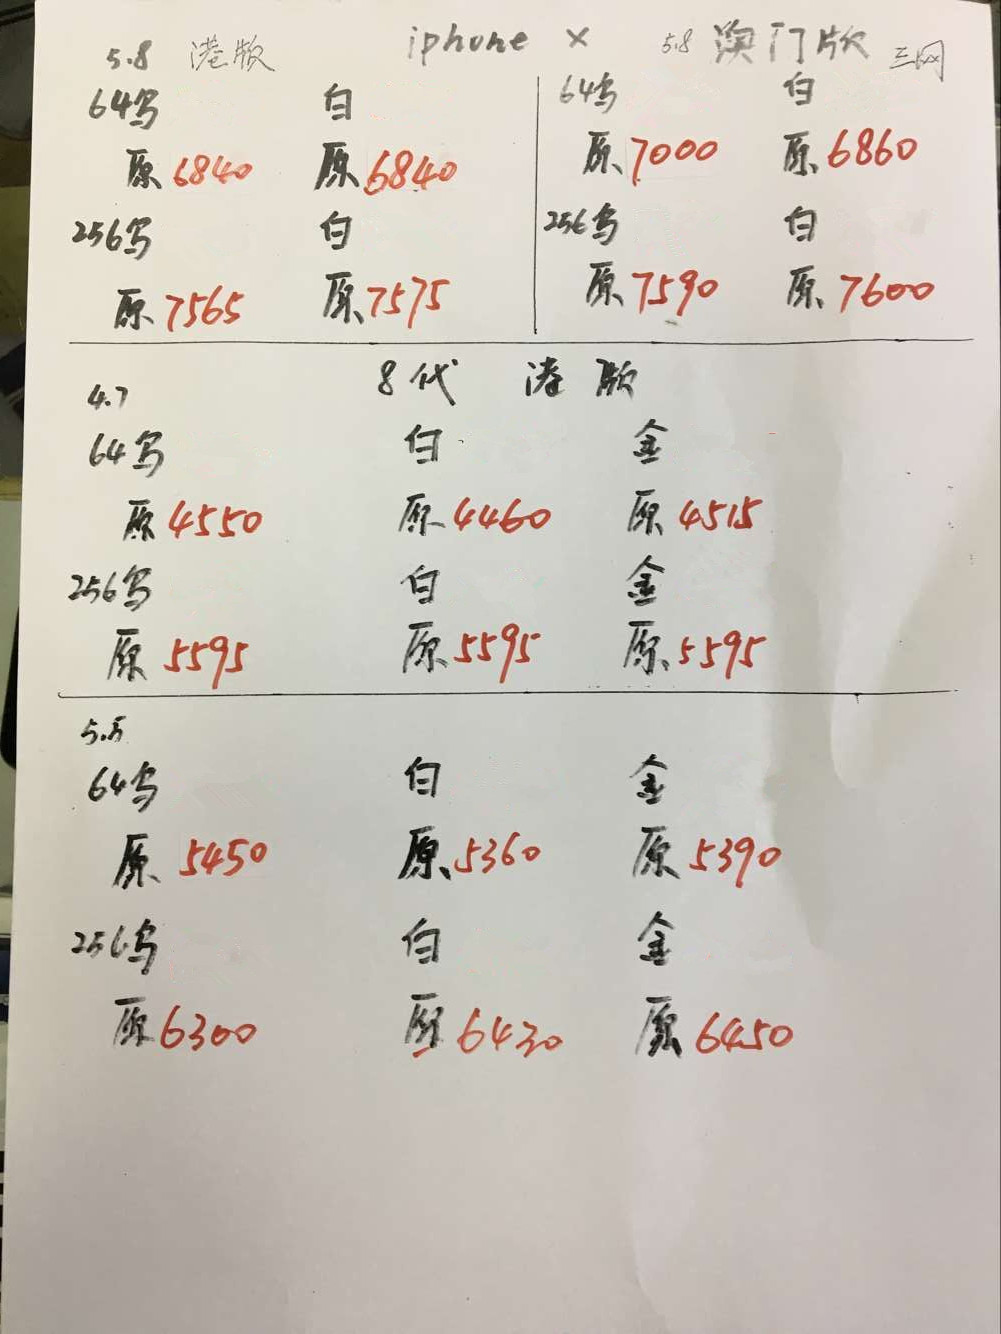 iphone X
5.8 港版
64乌 白
原 6840 原 6840
256乌 白
原 7565 原 7575
5.8 澳门版 三网
64乌 白
原 7000 原 6860
256乌 白
原 7590 原 7600
8代 港版
4.7
64乌 白 金
原 4550 原 4460 原 4515
256乌 白 金
原 5595 原 5595 原 5595
5.5
64乌 白 金
原 5450 原 5360 原 5390
256乌 白 金
原 6300 原 6430 原 6450